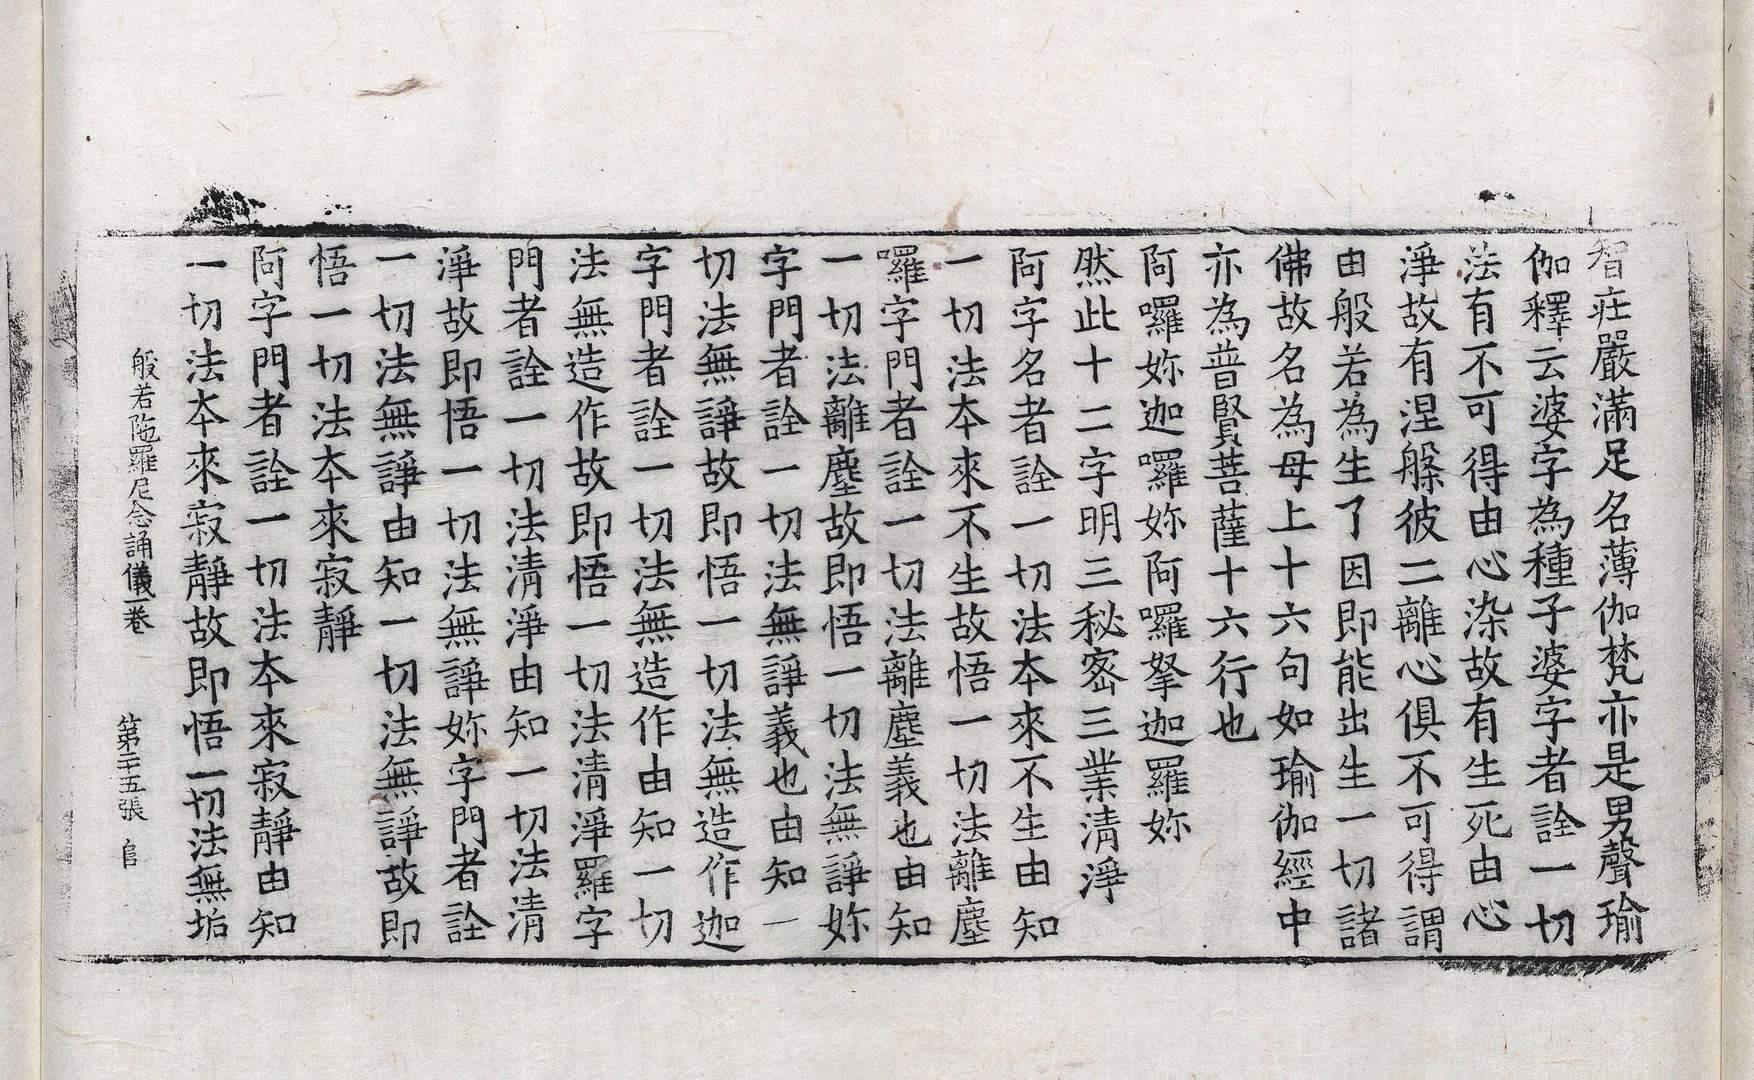 智莊嚴滿足名薄伽梵亦是男聲瑜
伽釋云婆字為種子婆字者詮一切
法有不可得由心染故有生死由心
淨故有涅槃彼二離心俱不可得謂
由般若為生了因即能出生一切諸
佛故名為母上十六句如瑜伽經中
亦為普賢菩薩十六行也
阿囉妳迦囉妳阿囉拏迦羅妳
然此十二字明三秘密三業清淨
阿字名者詮一切法本來不生由知
一切法本來不生故悟一切法離塵
囉字門者詮一切法離塵義也由知
一切法離塵故即悟一切法無諍妳
字門者詮一切法無諍義也由知一
切法無諍故即悟一切法無造作迦
字門者詮一切法無造作由知一切
法無造作故即悟一切法清淨羅字
門者詮一切法清淨由知一切法清
淨故即悟一切法無諍妳字門者詮
一切法無諍由知一切法無諍故即
悟一切法本來寂靜
阿字門者詮一切法本來寂靜由知
一切法本來寂靜故即悟一切法無垢
般若陁羅尼念誦儀一卷 第二十五張 官